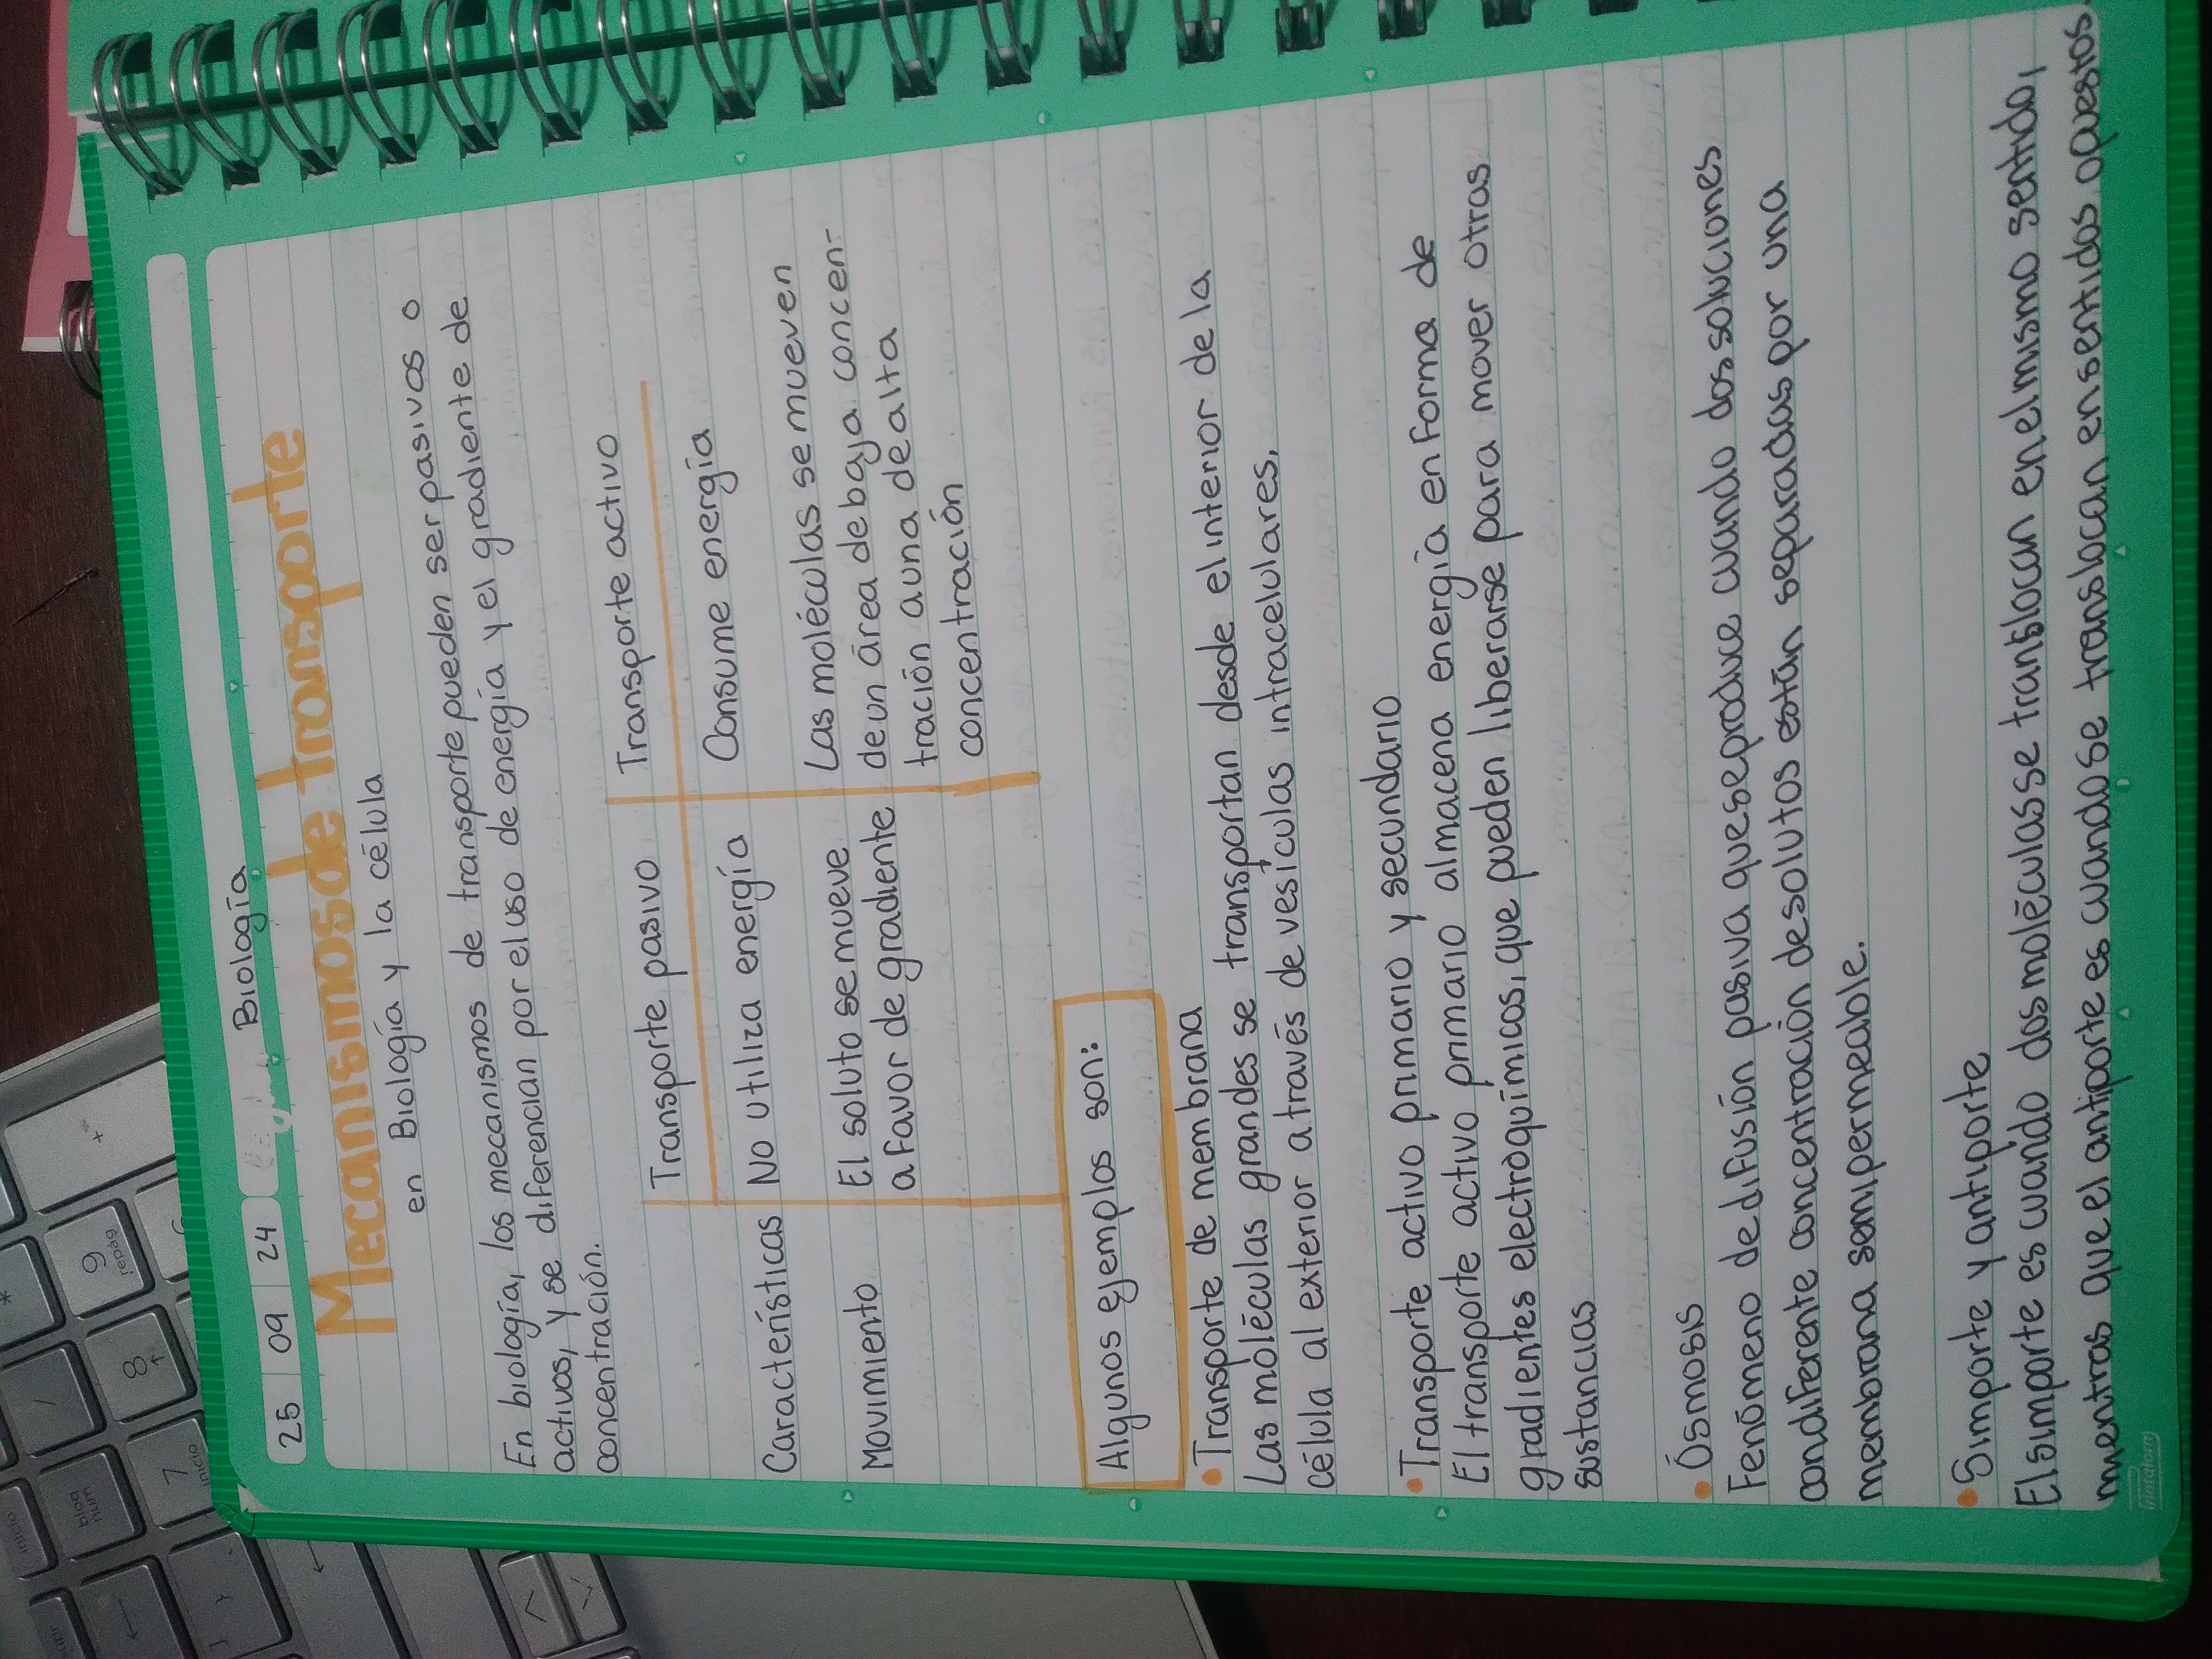 25 09 24 Biología
Mecanismos de transporte
en Biología y la célula
En biología, los mecanismos de transporte pueden ser pasivos o
activos, y se diferencian por el uso de energía y el gradiente de
concentración.
Transporte pasivo Transporte activo
Características No utiliza energía Consume energía
Movimiento El soluto se mueve Las moléculas se mueven
a favor de gradiente de un área de baja concen-
tración a una de alta
concentración
Algunos ejemplos son:
• Transporte de membrana
Las moléculas grandes se transportan desde el interior de la
célula al exterior a través de vesículas intracelulares.
• Transporte activo primario y secundario
El transporte activo primario almacena energía en forma de
gradientes electroquímicos, que pueden liberarse para mover otras
sustancias
• Ósmosis
Fenómeno de difusión pasiva que se produce cuando dos soluciones
con diferente concentración de solutos están separadas por una
membrana semipermeable.
• Simporte y antiporte
El simporte es cuando dos moléculas se translocan en el mismo sentido,
mientras que el antiporte es cuando se translocan en sentidos opuestos.
* / +
7 inicio
8
9 repág
bloq num
inicio